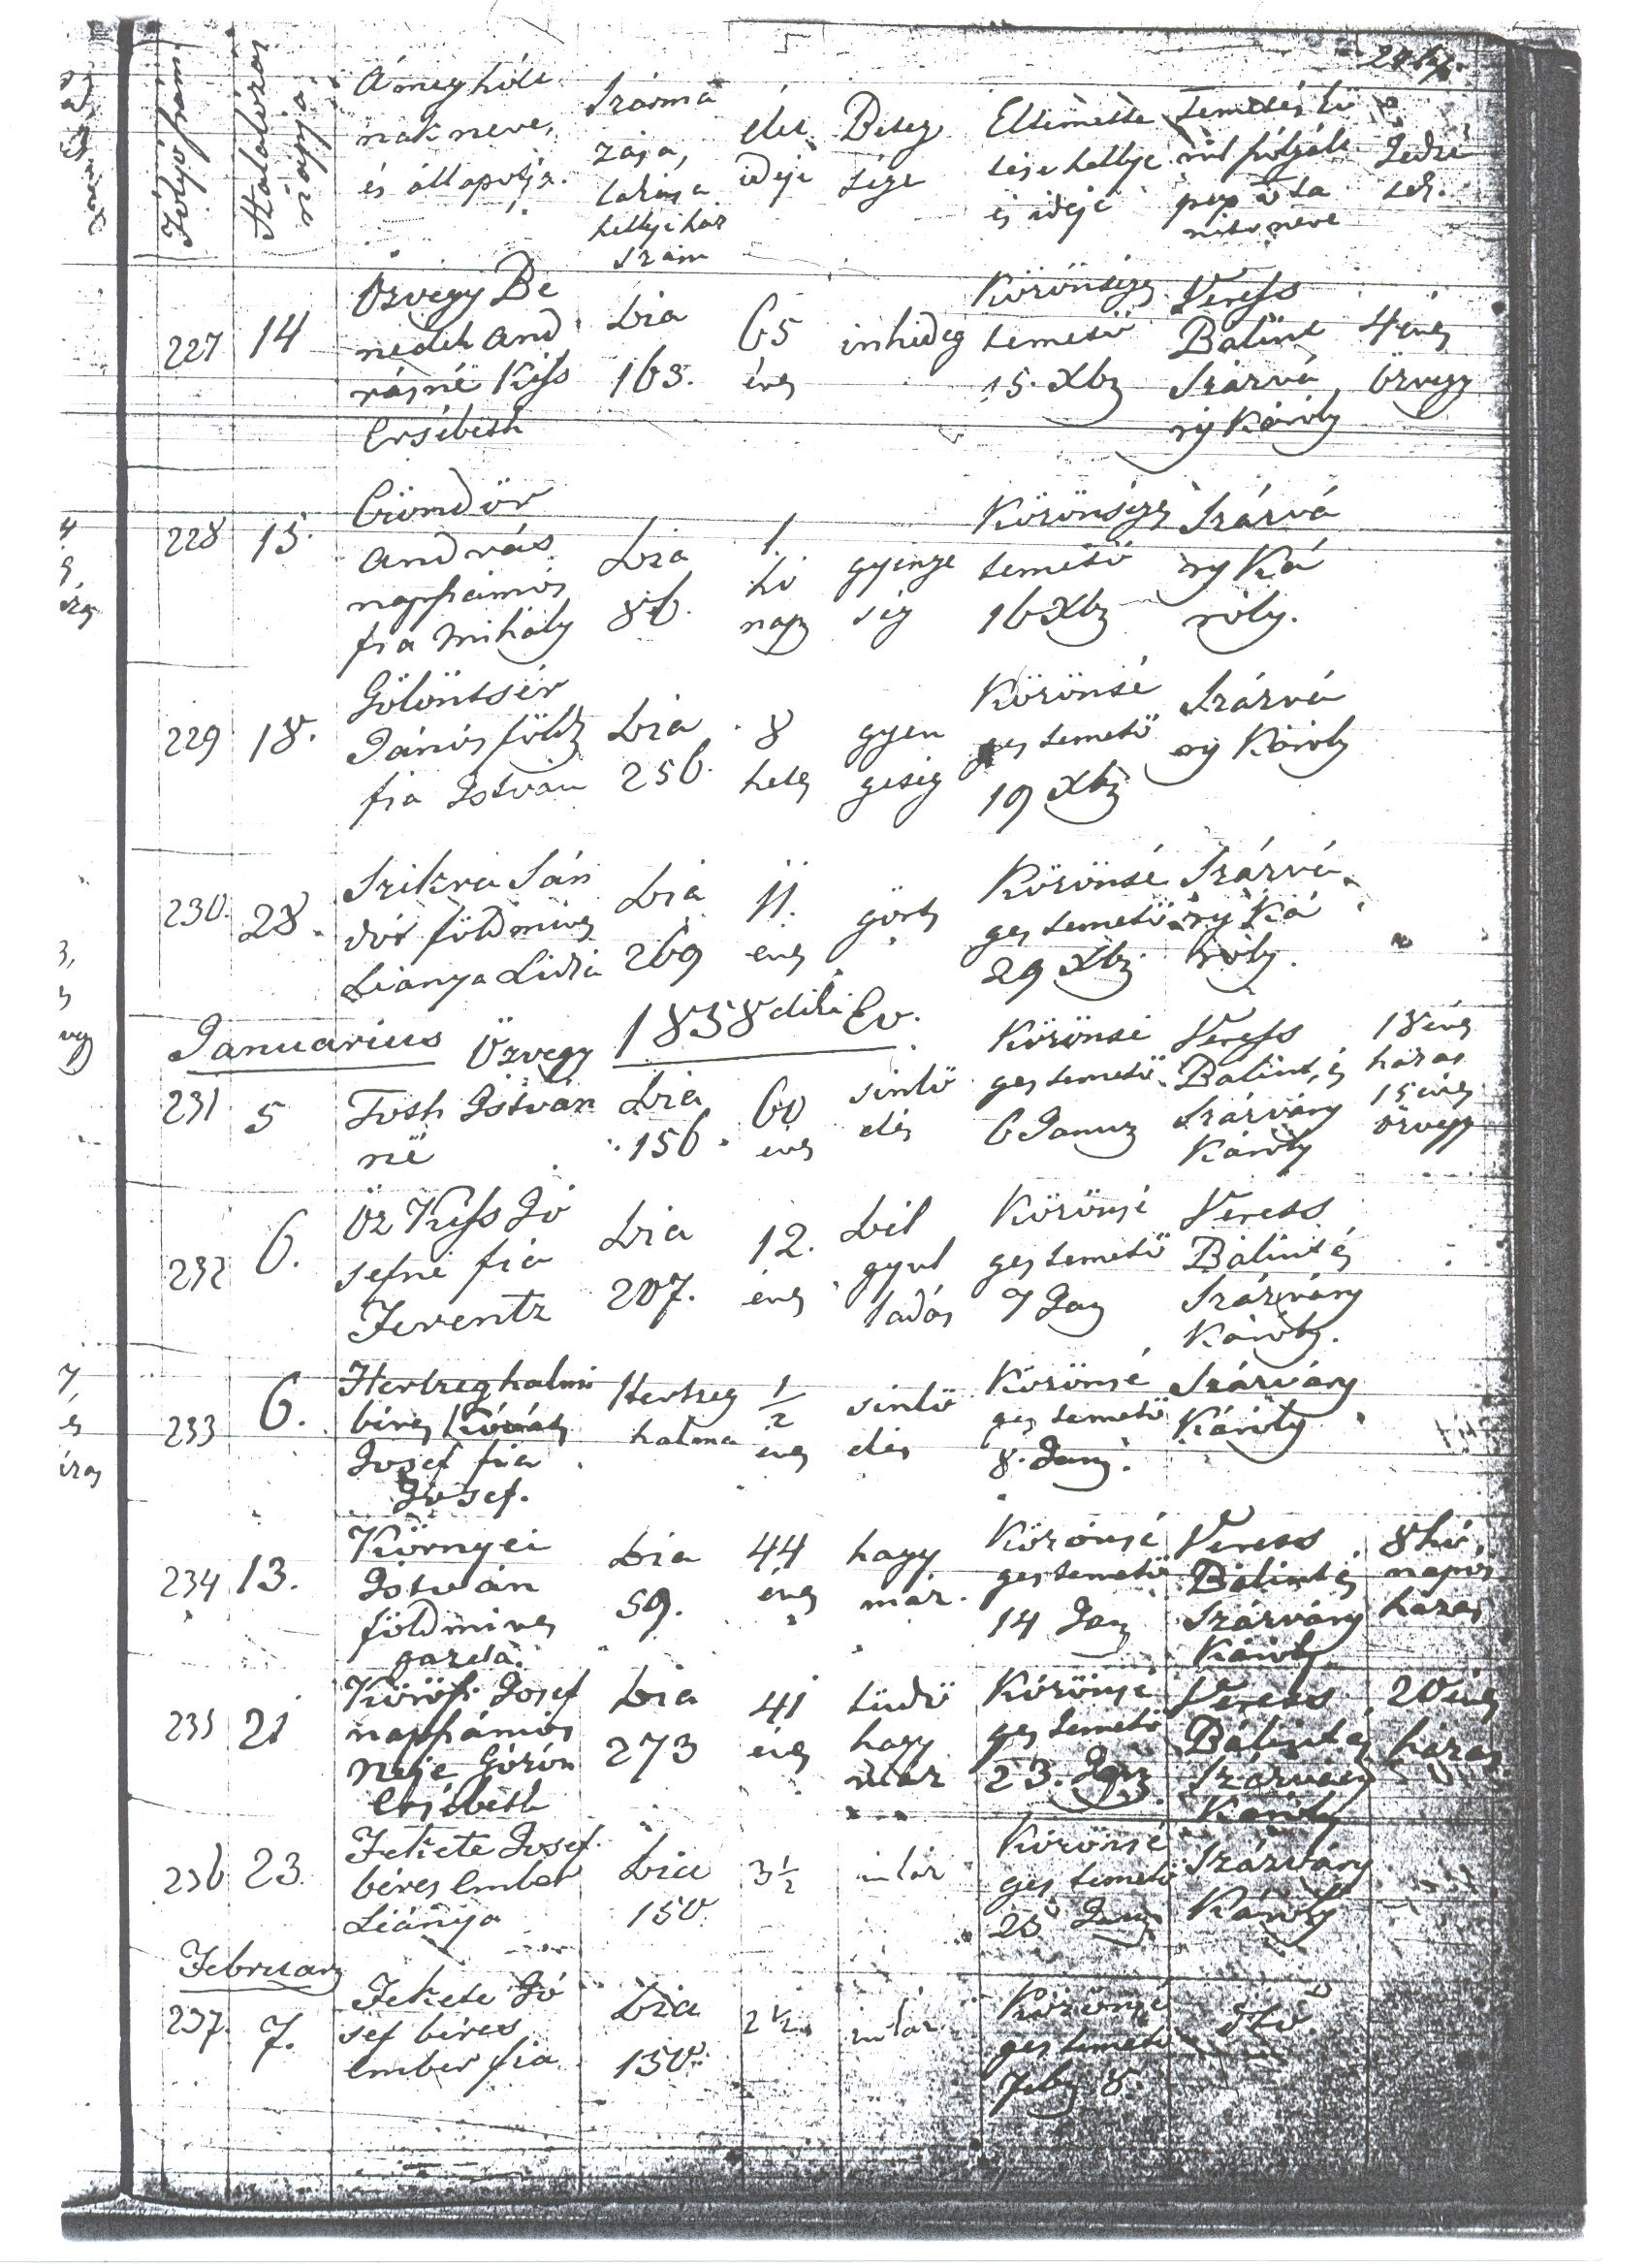 Folyó szám
Halálozás
napja
A meghólt
nak neve,
és állapotja.
Szárma
zása,
lakása
hellye ház
szám
élet
ideje
Beteg
sége
Eltemette
tése hellye
és ideje
Temetési Szó
pap és ta
nító neve
Jedzé
sek.
227
14
Özvegy Be
nedek And
rásné Kiss
Ersébeth
Bia
163.
65
éves
inhideg
Közönséges
temető
15. Xbr
Veress
Bálint
Szárvá
ny Károly
4 éves
özvegy
228
15.
Csöndör
András
napszámos
fia Mihály
Bia
86.
1.
hó
nap
gyenge
ség
Közönséges
temető
16 Xbr
Szárvá
ny Ká
roly.
229
18.
Gölöntsér
János földm
fia István
Bia
256.
8
hetes
gyen
geség
Közönsé
ges temető
19 Xbr
Szárvá
ny Károly
230.
28.
Szikra Sán
dor földmives
Leánya Lidia
Bia
269
11.
éves
görts
Közönsé
ges temető
29 Xbr
Szárvá
ny Ká
roly.
Januarius
1838dik Év.
231
5
Özvegy
Toth István
né
Bia
156.
60
éves
sinlő
dés
Közönsé
ges temető
6 Januar
Veress
Bálint, és
Szárvány
Károly
18 éves
házas
15 éves
özvegy
232
6.
Öz Kiss Jó
sefné fia
Ferentz
Bia
207.
12.
éves
Bél
gyul
ladás
Közönsé
ges temető
7 Jan
Veress
Bálint és
Szárvány
Károly.
233
6.
Hertzeghalmi
béres Kovács
Josef fia
Josef.
Hertzeg
halma
1/2
éves
sinlő
dés
Közönsé
ges temető
8. Jan.
Szárvány
Károly
234
13.
Környei
István
földmives
gazda.
Bia
59.
44
éves
hagy
máz.
Közönsé
ges temető
14 Jan
Veress
Bálint és
Szárvány
Károly
8 hó,
napos
házas
235
21
Körösi Josef
napszámos
Neje Görön
Ersébeth
Bia
273
41
éves
tüdő
hagy
máz
Közönsé
ges temető
23. Jan
Veress
Bálint és
Szárvány
Károly
20 éves
házas
236
23.
Fekete Josef
béres ember
Leánya
Bia
150.
3 1/2
Közönsé
ges temető
25 Jan
Szárvány
Károly
Februar
237.
7.
Fekete Jó
sef béres
ember fia
Bia
150.
2 1/2
Közönsé
ges temető
Feb. 8.